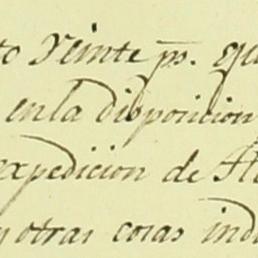 to veinte ps. qu
en la disposicion
expedicion de
y otras cosas ind